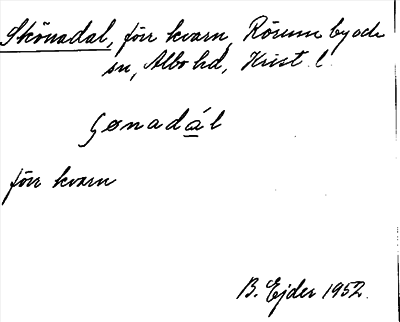 Skönadal, förr kvarn, Rörum by och
sn, Albo hd, Krist. l.
ʂønadál
förr kvarn
B. Ejder 1952.